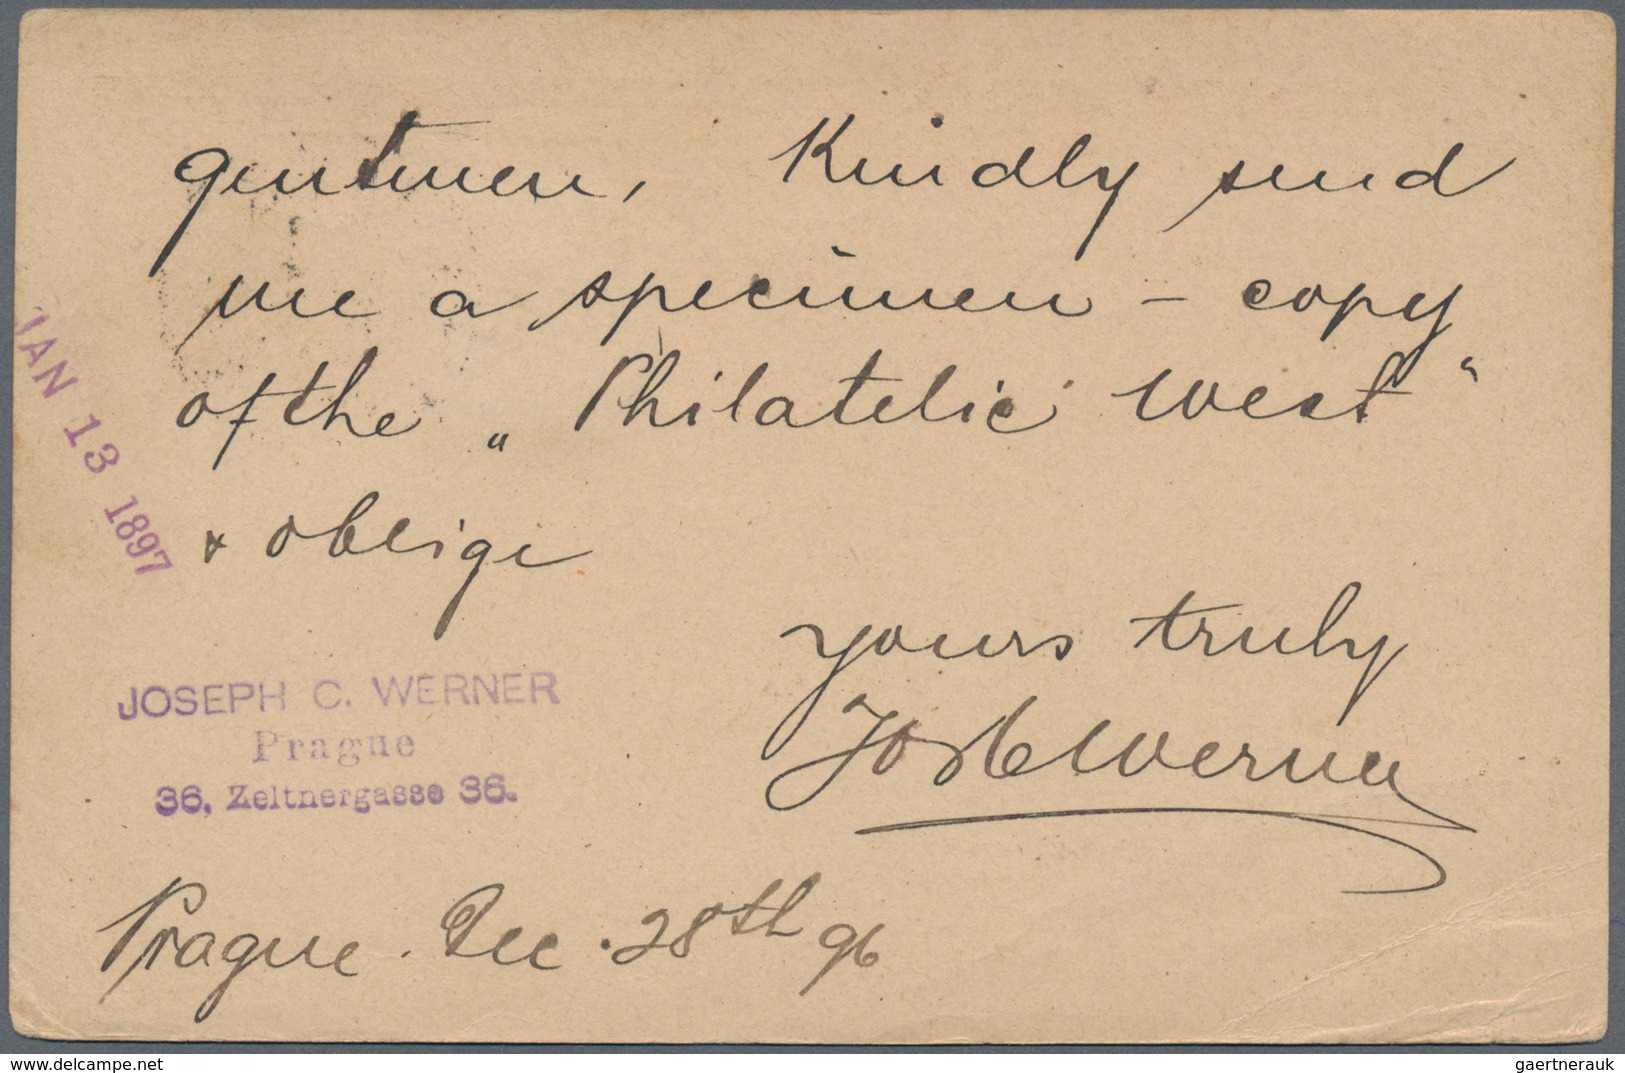 gentlmen, Kindly send
me a specimen - copy
of the „Philatelic West“
& oblige
yours truly
Jos C Werner
JAN 13 1897
JOSEPH C. WERNER
Prague
36, Zeltnergasse 36.
Prague. Dec. 28th 96
www.delcampe.net
gaertnerauk